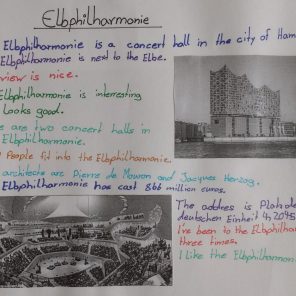 Elbphilharmonie
Elbphilharmonie is a concert hall in the city of Ham
Elbphilharmonie is next to the Elbe.
view is nice.
Elbphilharmonie is interresting
looks good.
are two concert halls in
Elbphilharmonie.
People fit into the Elbphilharmonie.
architects are Pierre de Meuron and Jacques Herzog.
Elbphilharmonie has cast 866 million euros.
The address is Platz de
deutschen Einheit 4, 2045
I've been to the Elbphilha
three times.
I like the Elbphilharmon